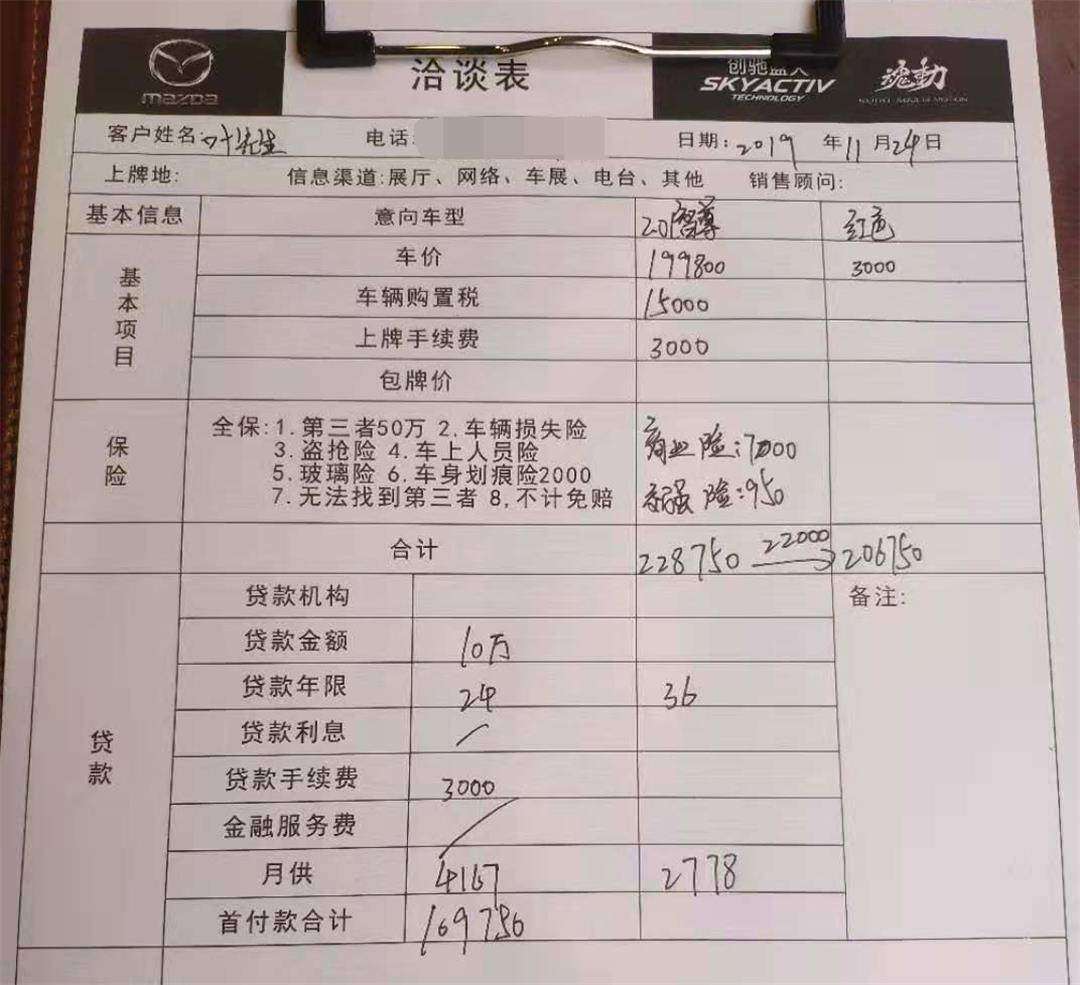 mazda
洽谈表
创驰蓝天
SKYACTIV
TECHNOLOGY
魂動
客户姓名:叶先生 电话: 日期:2019 年11月24日
上牌地: 信息渠道:展厅、网络、车展、电台、其他 销售顾问:
基本信息 意向车型 2.0智尊 红色
基本项目
车价 199800 3000
车辆购置税 15000
上牌手续费 3000
包牌价
保险
全保:1.第三者50万 2.车辆损失险
3.盗抢险 4.车上人员险
5.玻璃险 6.车身划痕险2000
7.无法找到第三者 8,不计免赔
商业险:7000
交强险:950
合计 228750 22000 206750
贷款
贷款机构 备注:
贷款金额 10万
贷款年限 24 36
贷款利息 /
贷款手续费 3000
金融服务费 /
月供 4167 2778
首付款合计 169750